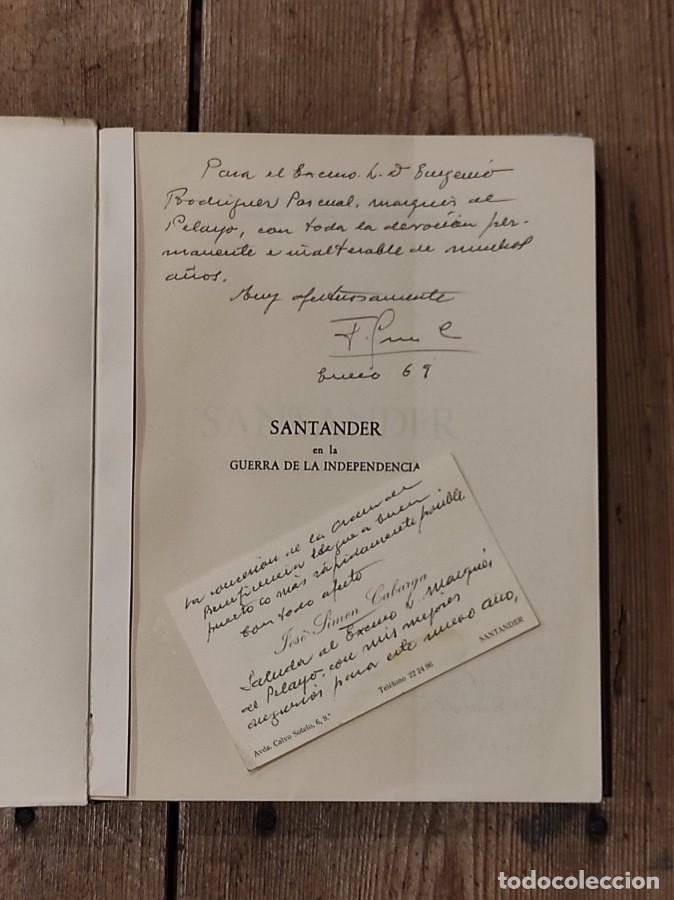 Para el Excmo. S. D Eugenio
Rodriguez Pascual, marqués de
Pelayo, con toda la devoción per-
manente e inalterable de muchos
años.
Muy afectuosamente
Enero 69
SANTANDER
en la
GUERRA DE LA INDEPENDENCIA
la concesión de la Orden de
Beneficencia llegue a buen
puerto lo más rápidamente posible
Con todo afecto
José Simon Cabarga
Saluda al Excmo S. Marqués
de Pelayo, con mis mejores
augurios para este nuevo año,
Avda. Calvo Sotelo, 6, 9.º
Teléfono 22 24 96
SANTANDER
todocoleccion